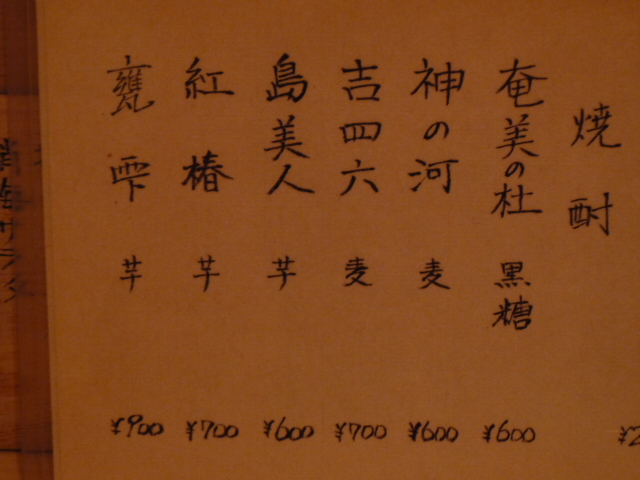 焼酎
奄美の杜 黒糖 ¥600
神の河 麦 ¥600
吉四六 麦 ¥700
島美人 芋 ¥600
紅椿 芋 ¥700
甕雫 芋 ¥900